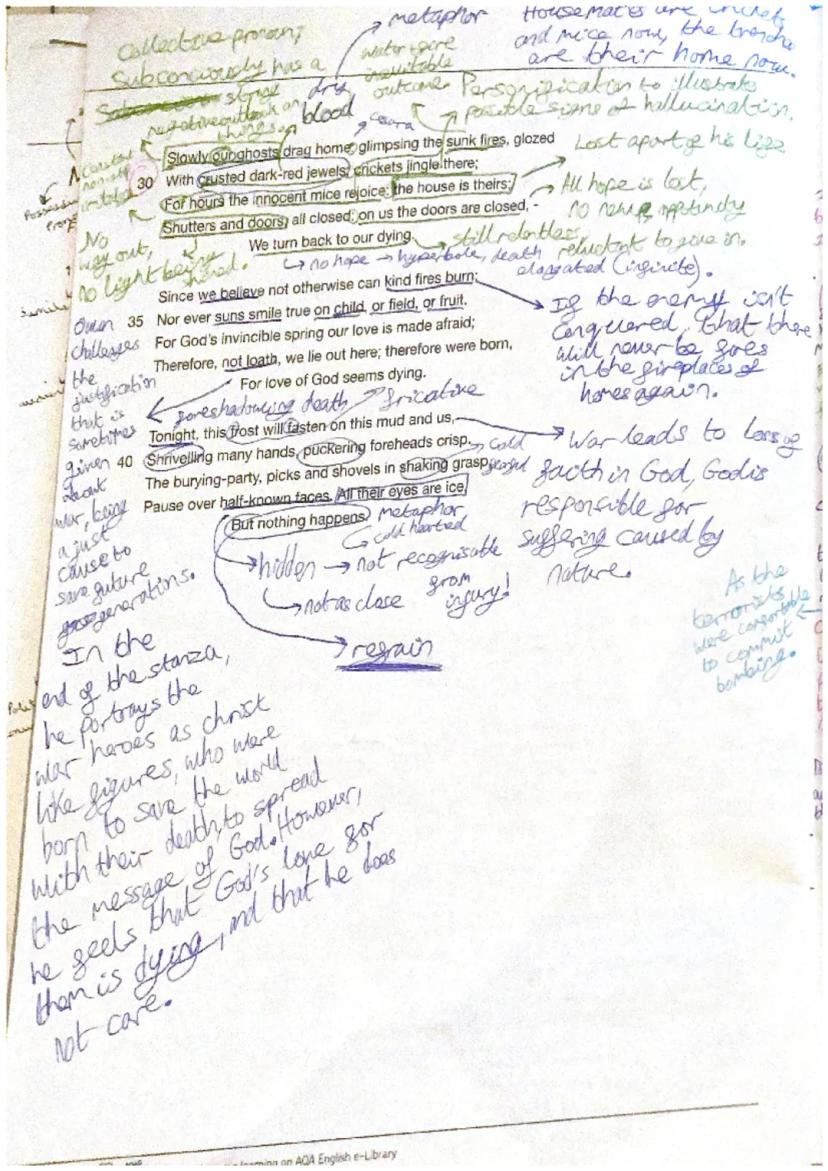 metaphor
Housemates are crickets
and mice now, the trenches
are their home now.
Collective pronoun,
Subconciously has a
negative outlook on
things
dry
blood
outcome
Personification to illustrate
possible signs of hallucination.
Slowly our ghosts drag home: glimpsing the sunk fires, glozed
30 With crusted dark-red jewels; crickets jingle there;
For hours the innocent mice rejoice: the house is theirs;
Shutters and doors, all closed: on us the doors are closed, -
We turn back to our dying.
Lost apart of his life
All hope is lost,
still relentless,
reluctant to give in.
No
way out,
no light being
shined.
no hope → hyperbole, death
elongated (infinite).
Since we believe not otherwise can kind fires burn;
35 Nor ever suns smile true on child, or field, or fruit.
For God's invincible spring our love is made afraid;
Therefore, not loath, we lie out here; therefore were born,
For love of God seems dying.
If the enemy isn't
conquered, that there
will never be fires
in the fireplaces of
homes again.
Owen
challenges
the
justification
that is
sometimes
given
about
war, being
a just
cause to
save future
generations.
foreshadowing death
fricative
Tonight, this frost will fasten on this mud and us,
40 Shrivelling many hands, puckering foreheads crisp.
The burying-party, picks and shovels in shaking grasp,
Pause over half-known faces. All their eyes are ice,
But nothing happens.
cold
War leads to losing
faith in God, God is
responsible for
suffering caused by
nature.
metaphor
cold hearted
hidden → not recognisable
from
injury!
not as close
refrain
As the
terrorists
were comfortable
to commit
bombing.
In the
end of the stanza,
he portrays the
war heroes as christ
like figures, who were
born to save the world
with their death, to spread
the message of God. However,
he feels that God's love for
them is dying, and that he does
not care.
learning on AQA English e-Library